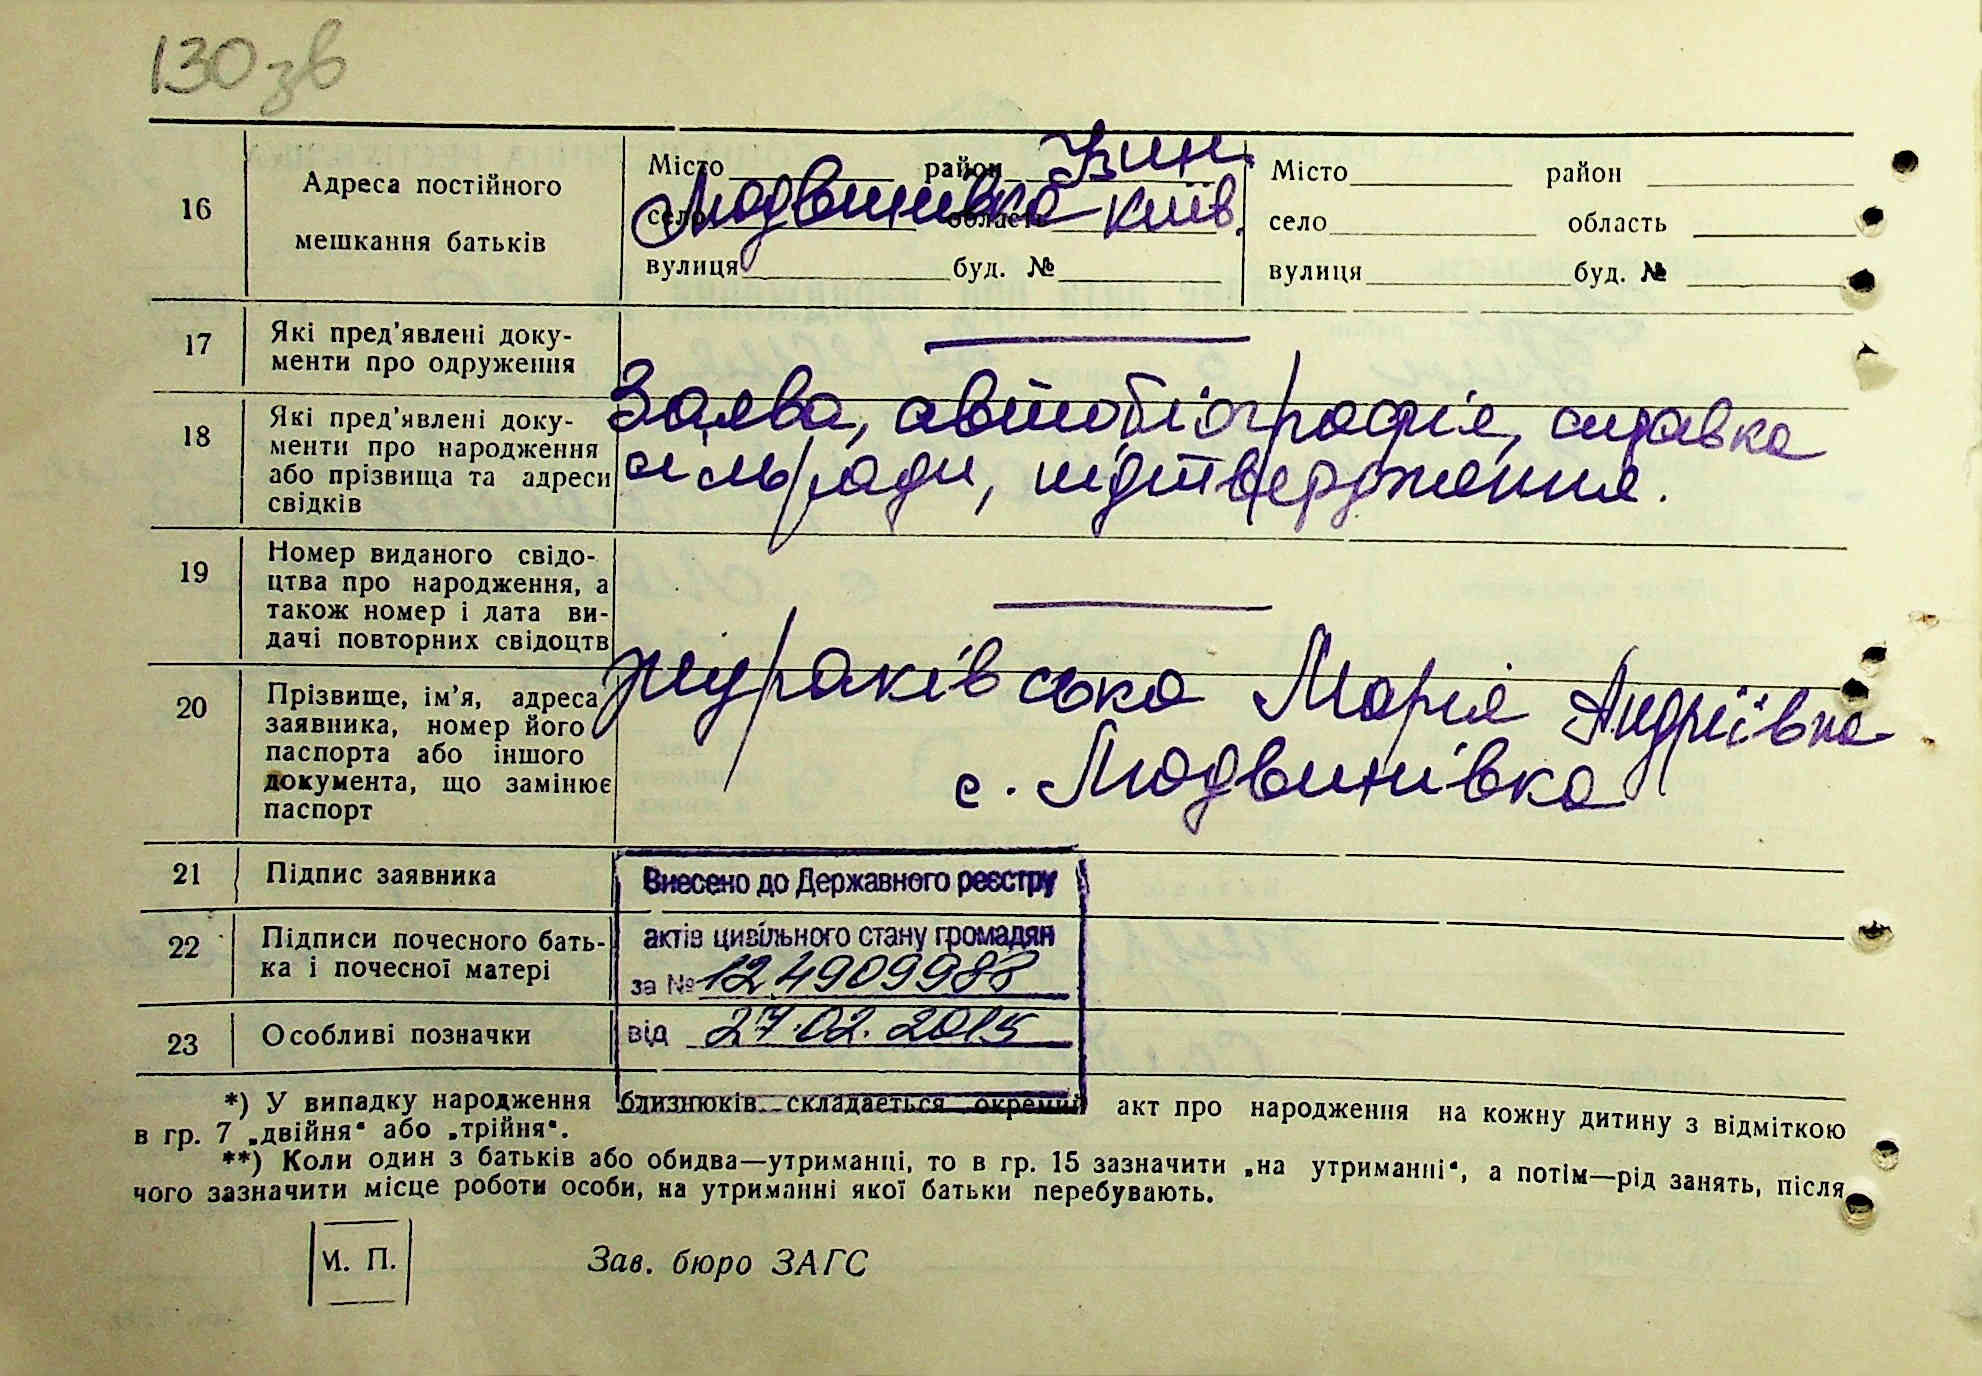 130 зв
16 Адреса постійного мешкання батьків
Місто район Узин.
село Людвинівка область Київ.
вулиця буд. №
Місто район
село область
вулиця буд. №
17 Які пред'явлені доку-
менти про одруження
18 Які пред'явлені доку-
менти про народження
або прізвища та адреси
свідків
Заява, автобіографія, справка
сільради, підтвердження.
19 Номер виданого свідо-
цтва про народження, а
також номер і дата ви-
дачі повторних свідоцтв
20 Прізвище, ім'я, адреса
заявника, номер його
паспорта або іншого
документа, що замінює
паспорт
Жураківська Марія Андріївна
с. Людвинівка
21 Підпис заявника
22 Підписи почесного бать-
ка і почесної матері
23 Особливі позначки
Внесено до Державного реєстру
актів цивільного стану громадян
за № 124909988
від 27.02.2015
*) У випадку народження близнюків складається окремий акт про народження на кожну дитину з відміткою
в гр. 7 „двійня“ або „трійня“.
**) Коли один з батьків або обидва—утриманці, то в гр. 15 зазначити „на утриманні“, а потім—рід занять, після
чого зазначити місце роботи особи, на утриманні якої батьки перебувають.
М. П.
Зав. бюро ЗАГС